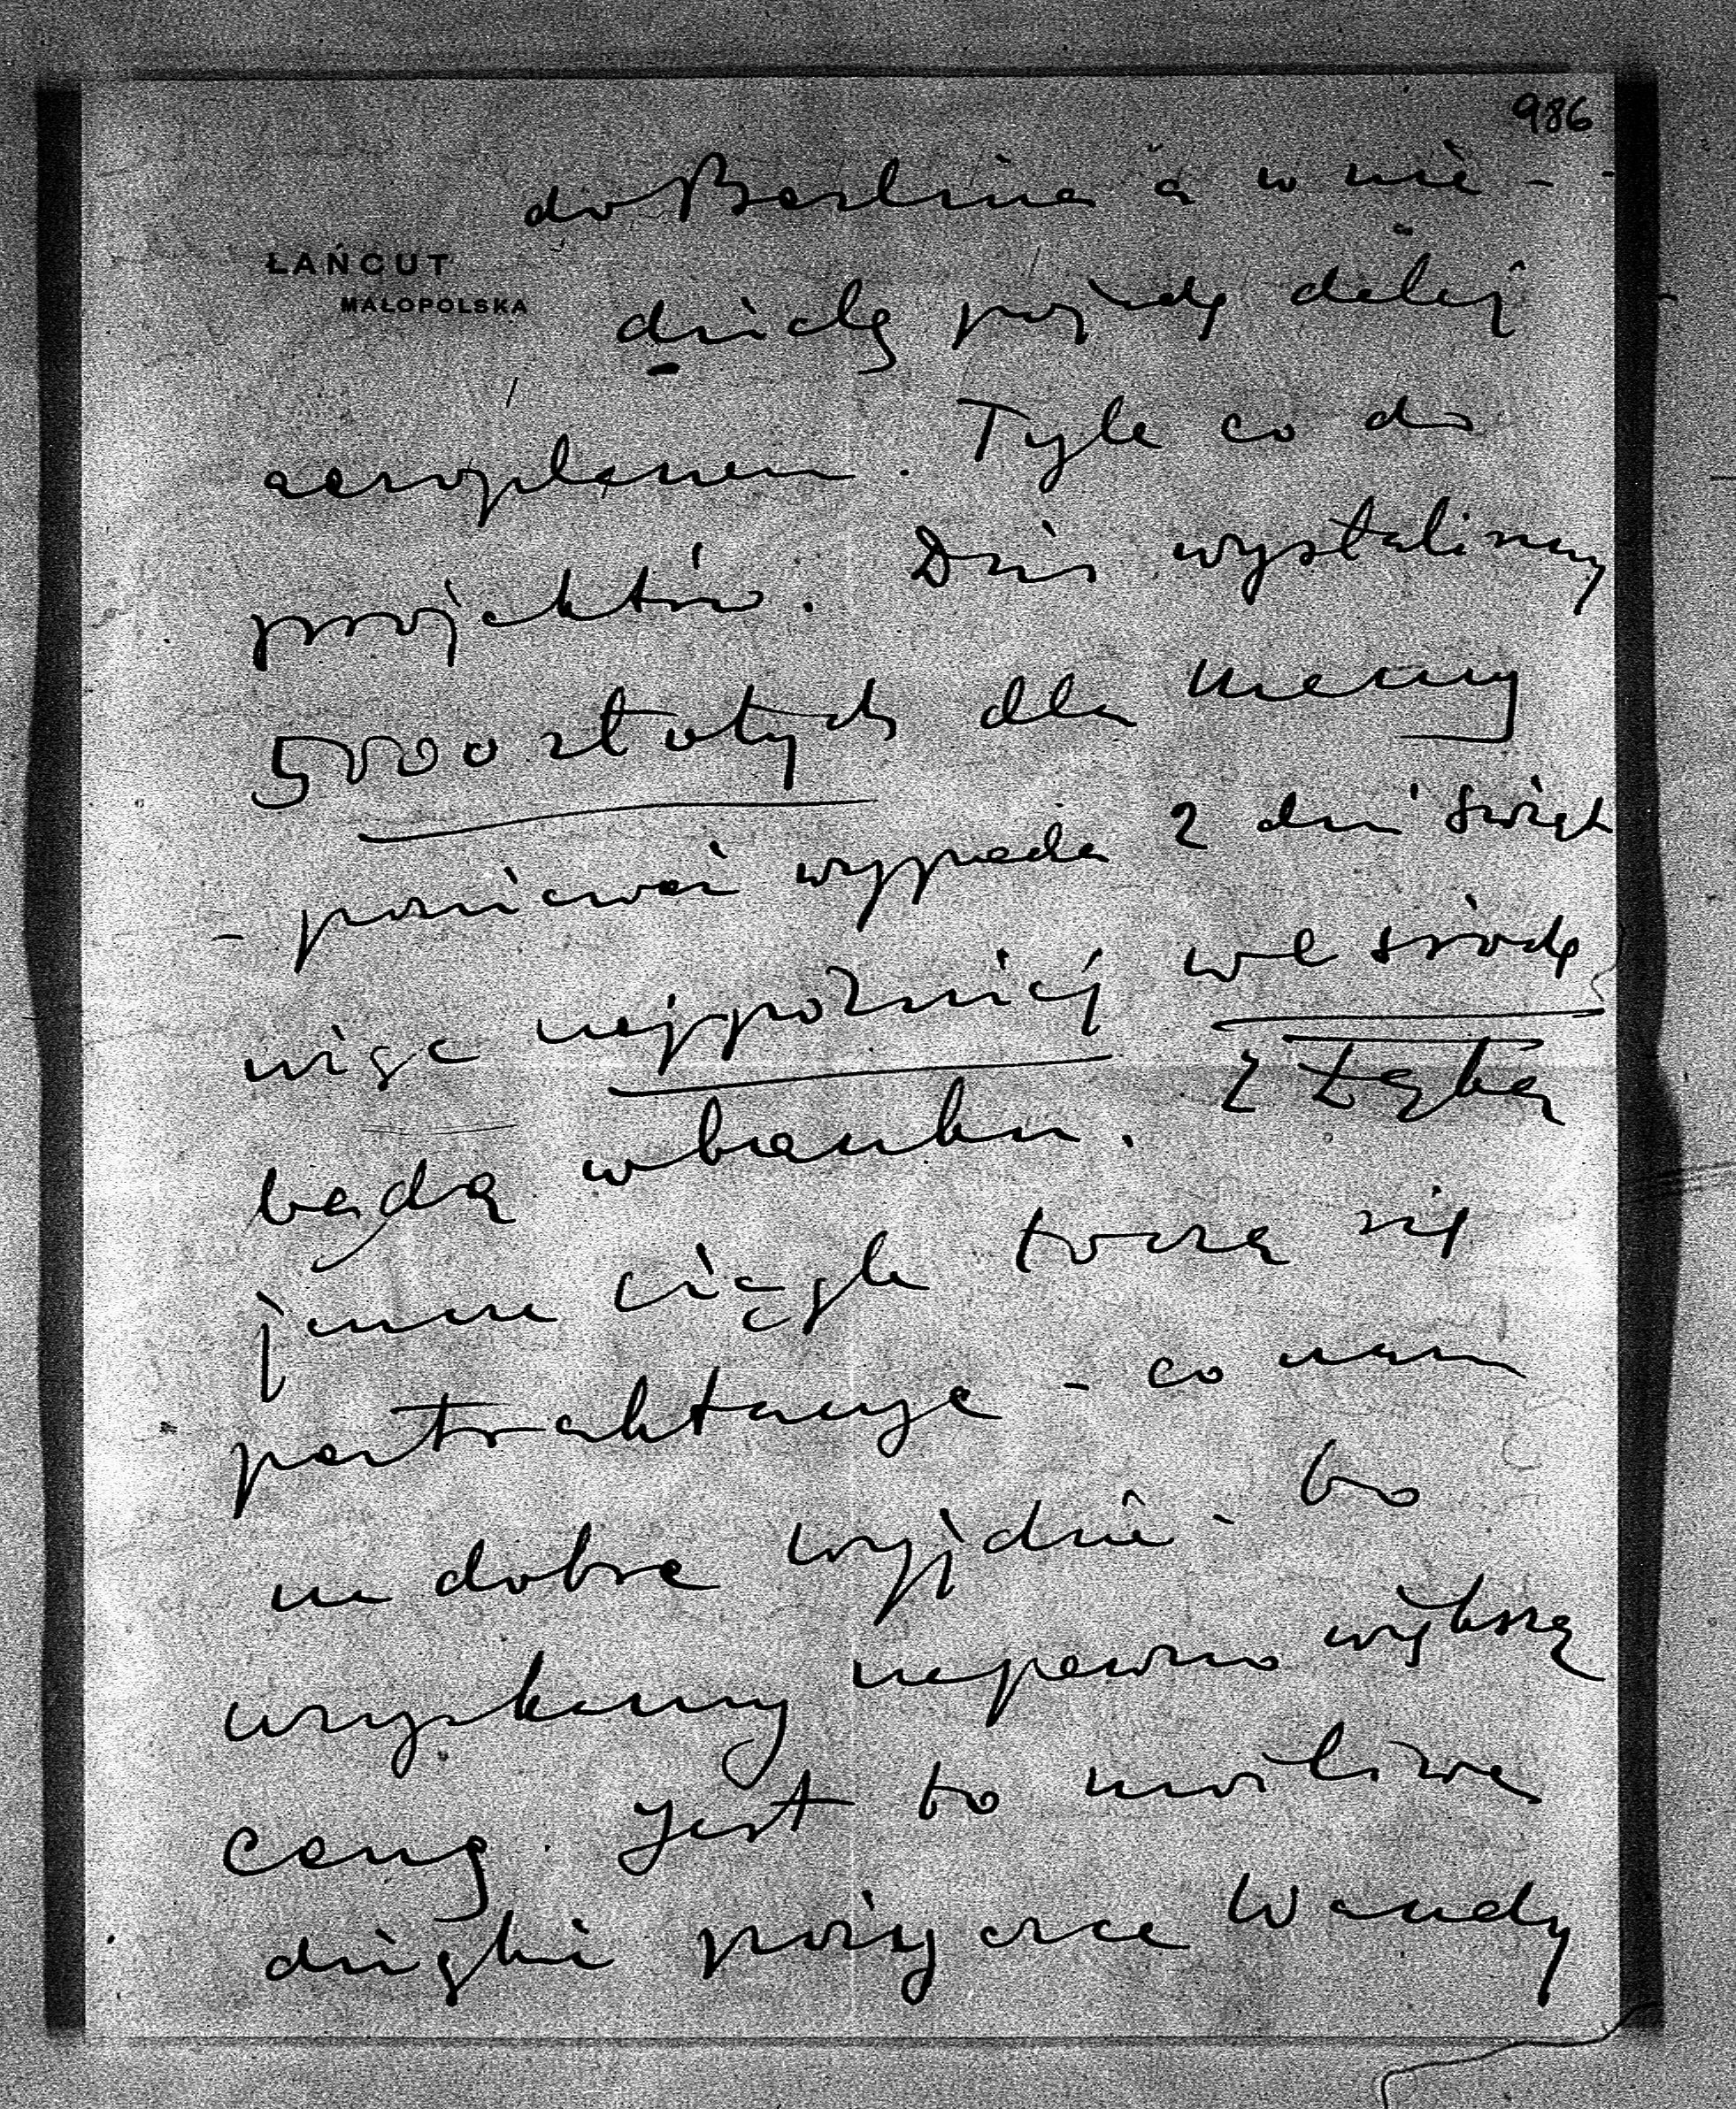 986
do Berlina a w nie-
ŁAŃCUT
MAŁOPOLSKA
dzielę pojadę dalej
aeroplanem. Tyle co do
projektów. Dziś wysłaliśmy
5000 złotych dla Mamy
- ponieważ wypada 2 dni świąt
więc najpóźniej we środę
będą w banku. Z Łąką
jeszcze ciągle toczą się
pertraktacye - co nam
na dobre wyjdzie - bo
uzyskamy napewno większą
cenę. Jest to możliwe
dzięki pożyczce Wandy